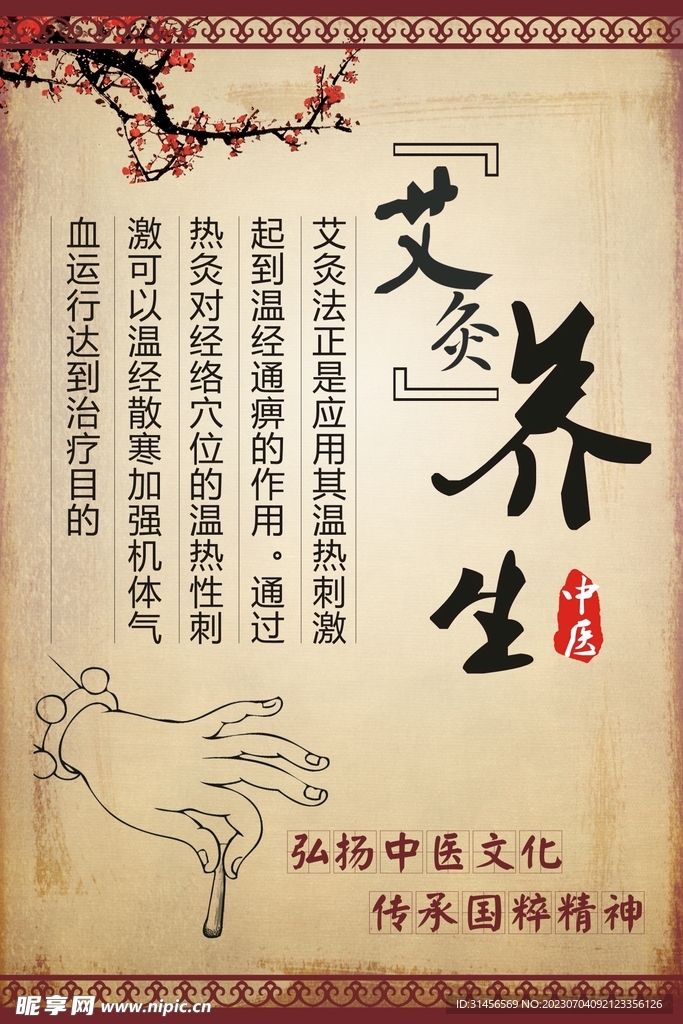 『艾灸』
养生
中医
艾灸法正是应用其温热刺激
起到温经通痹的作用。通过
热灸对经络穴位的温热性刺
激可以温经散寒加强机体气
血运行达到治疗目的
弘扬中医文化
传承国粹精神
昵享网 www.nipic.cn
ID:31456569 NO:20230704092123356126